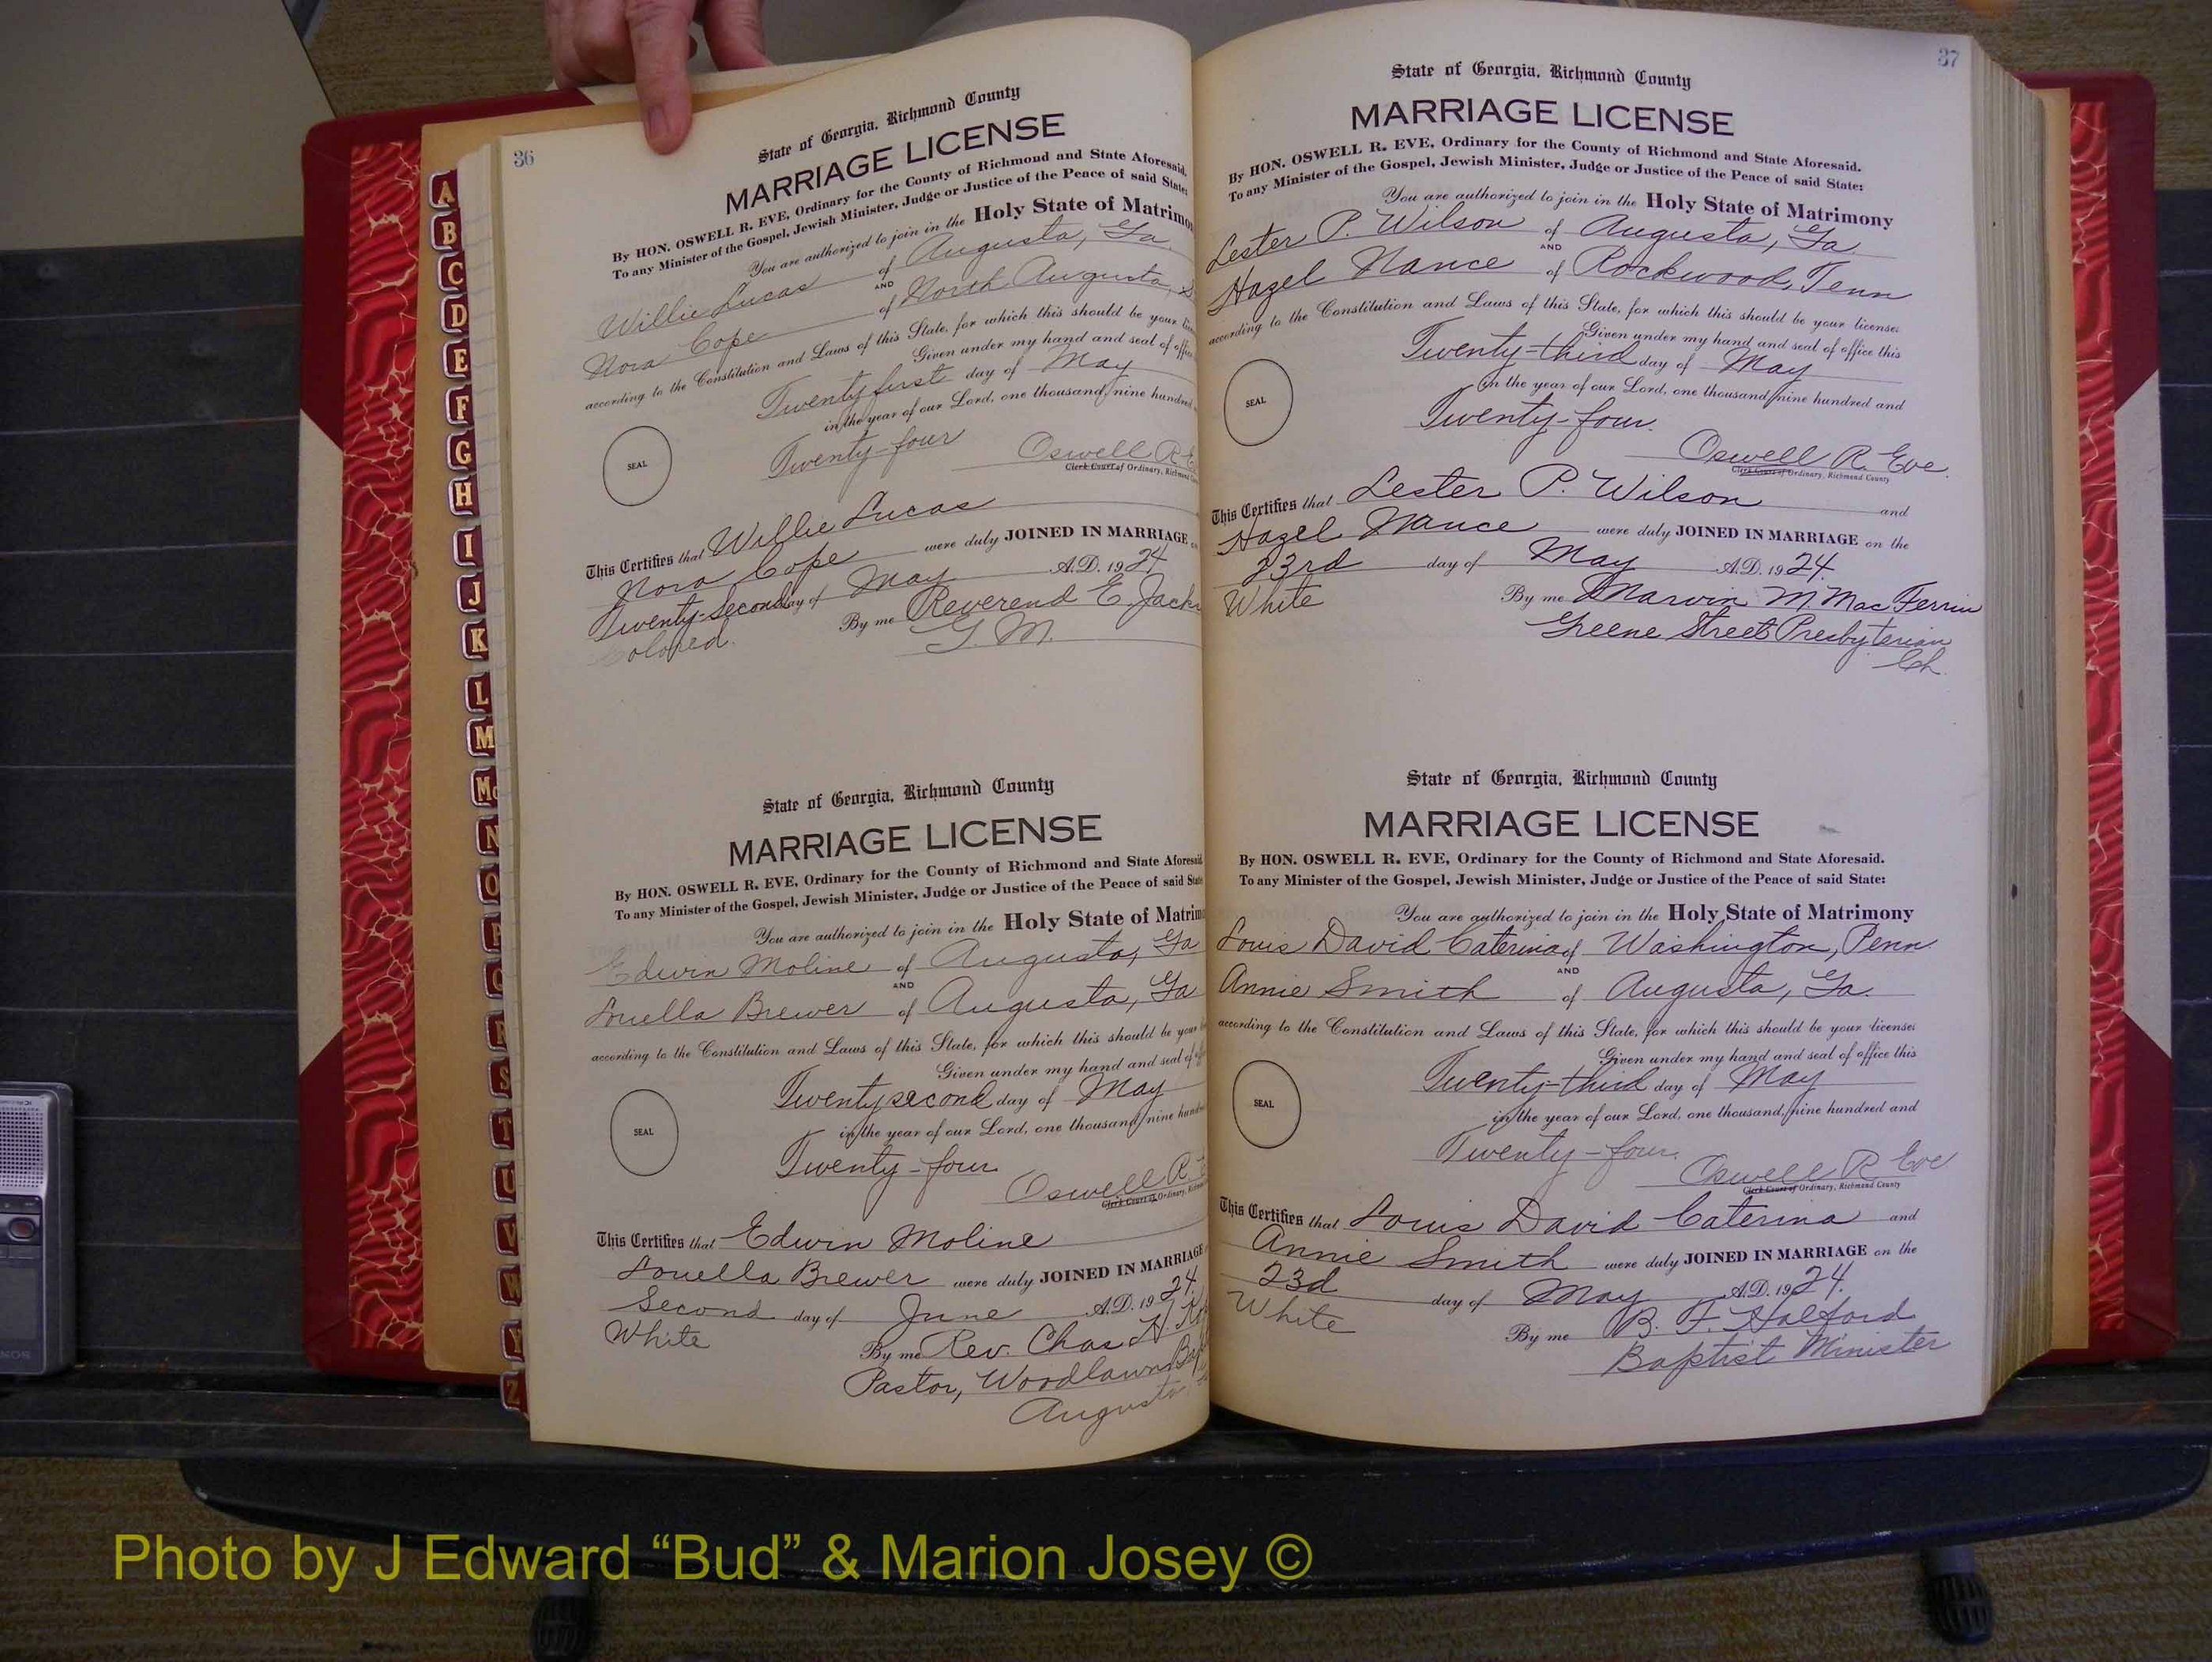 36
State of Georgia, Richmond County
MARRIAGE LICENSE
By HON. OSWELL R. EVE, Ordinary for the County of Richmond and State Aforesaid.
To any Minister of the Gospel, Jewish Minister, Judge or Justice of the Peace of said State:
You are authorized to join in the Holy State of Matrimon
Willie Lucas of Augusta, Ga.
AND
Nora Cope of North Augusta, S
according to the Constitution and Laws of this State, for which this should be your
Given under my hand and seal of office
Twenty first day of May
in the year of our Lord, one thousand, nine hundred
SEAL
Twenty-four
Oswell R. E
Clerk Court of Ordinary, Richmond
This Certifies that Willie Lucas
Nora Cope were duly JOINED IN MARRIAGE
Twenty-Second day of May A.D. 1924
Colored. By me Reverend E. Jacks
G. M.
State of Georgia, Richmond County
MARRIAGE LICENSE
By HON. OSWELL R. EVE, Ordinary for the County of Richmond and State Aforesaid
To any Minister of the Gospel, Jewish Minister, Judge or Justice of the Peace of said State
You are authorized to join in the Holy State of Matrim
Edwin Moline of Augusta, Ga
AND
Louella Brewer of Augusta, Ga
according to the Constitution and Laws of this State, for which this should be your
Given under my hand and seal of
Twenty second day of May
in the year of our Lord, one thousand, nine hundr
SEAL
Twenty-four
Oswell R.
Clerk Court of Ordinary,
This Certifies that Edwin Moline
Louella Brewer were duly JOINED IN MARRIAGE
Second day of June A.D. 1924.
White By me Rev. Chas. H.
Pastor, Woodlawn
Augusta
37
State of Georgia, Richmond County
MARRIAGE LICENSE
By HON. OSWELL R. EVE, Ordinary for the County of Richmond and State Aforesaid.
To any Minister of the Gospel, Jewish Minister, Judge or Justice of the Peace of said State:
You are authorized to join in the Holy State of Matrimony
Lester P. Wilson of Augusta, Ga.
AND
Hazel Nance of Rockwood, Tenn
according to the Constitution and Laws of this State, for which this should be your license:
Given under my hand and seal of office this
Twenty-third day of May
in the year of our Lord, one thousand, nine hundred and
SEAL
Twenty-four.
Oswell R. Eve.
Clerk Court of Ordinary, Richmond County
This Certifies that Lester P. Wilson and
Hazel Nance were duly JOINED IN MARRIAGE on the
23rd day of May A.D. 1924.
White By me Marvin M. MacFerrin
Greene Street Presbyterian
Ch.
State of Georgia, Richmond County
MARRIAGE LICENSE
By HON. OSWELL R. EVE, Ordinary for the County of Richmond and State Aforesaid.
To any Minister of the Gospel, Jewish Minister, Judge or Justice of the Peace of said State:
You are authorized to join in the Holy State of Matrimony
Louis David Caterina of Washington, Penn
AND
Annie Smith of Augusta, Ga.
according to the Constitution and Laws of this State, for which this should be your licenses
Given under my hand and seal of office this
Twenty-third day of May
in the year of our Lord, one thousand, nine hundred and
SEAL
Twenty-four.
Oswell R Eve
Clerk Court of Ordinary, Richmond County
This Certifies that Louis David Caterina and
Annie Smith were duly JOINED IN MARRIAGE on the
23d day of May A.D. 1924.
White By me B. F. Halford
Baptist Minister
A
B
C
D
E
F
G
H
I
J
K
L
M
Mc
N
O
P
Q
R
S
T
U
V
W
Y
Z
Photo by J Edward “Bud” & Marion Josey ©